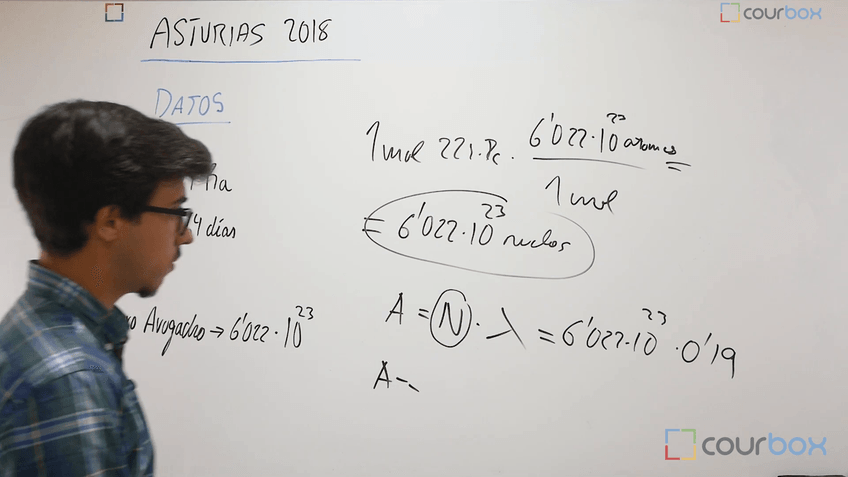 courbox
ASTURIAS 2018
DATOS
días
Avogadro → 6'022·10²³
1 mol 6'022·10²³ atomos
1 mol
= 6'022·10²³ nucleos
A = N · λ = 6'022·10²³ · 0'19
A
courbox